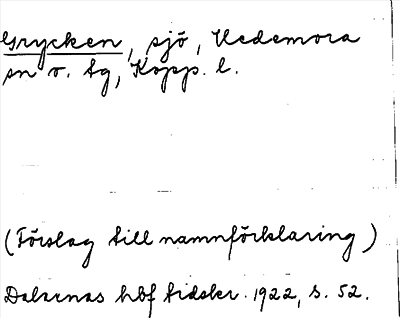 Grycken, sjö, Hedemora
sn o. tg, Kopp. l.
(Förslag till namnförklaring)
Dalarnas hbf tidskr. 1922, s. 52.